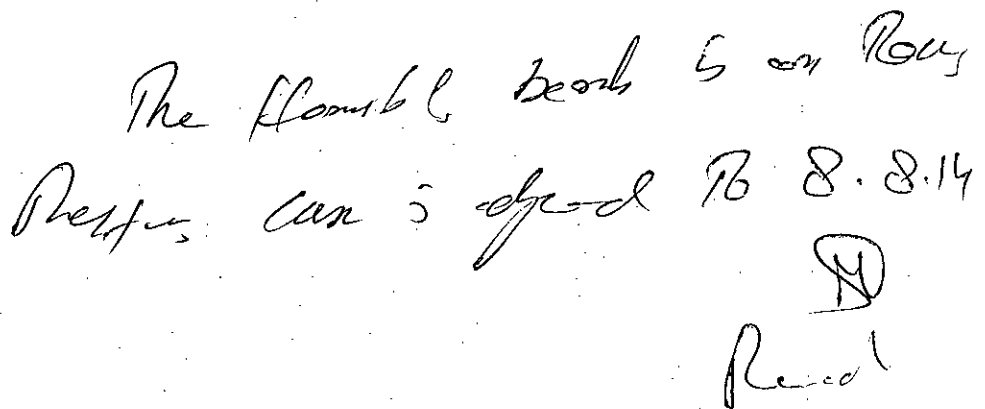 The Hon'ble bench is on Tour,
Therefore, case is adjourned To 8.8.14
Reader